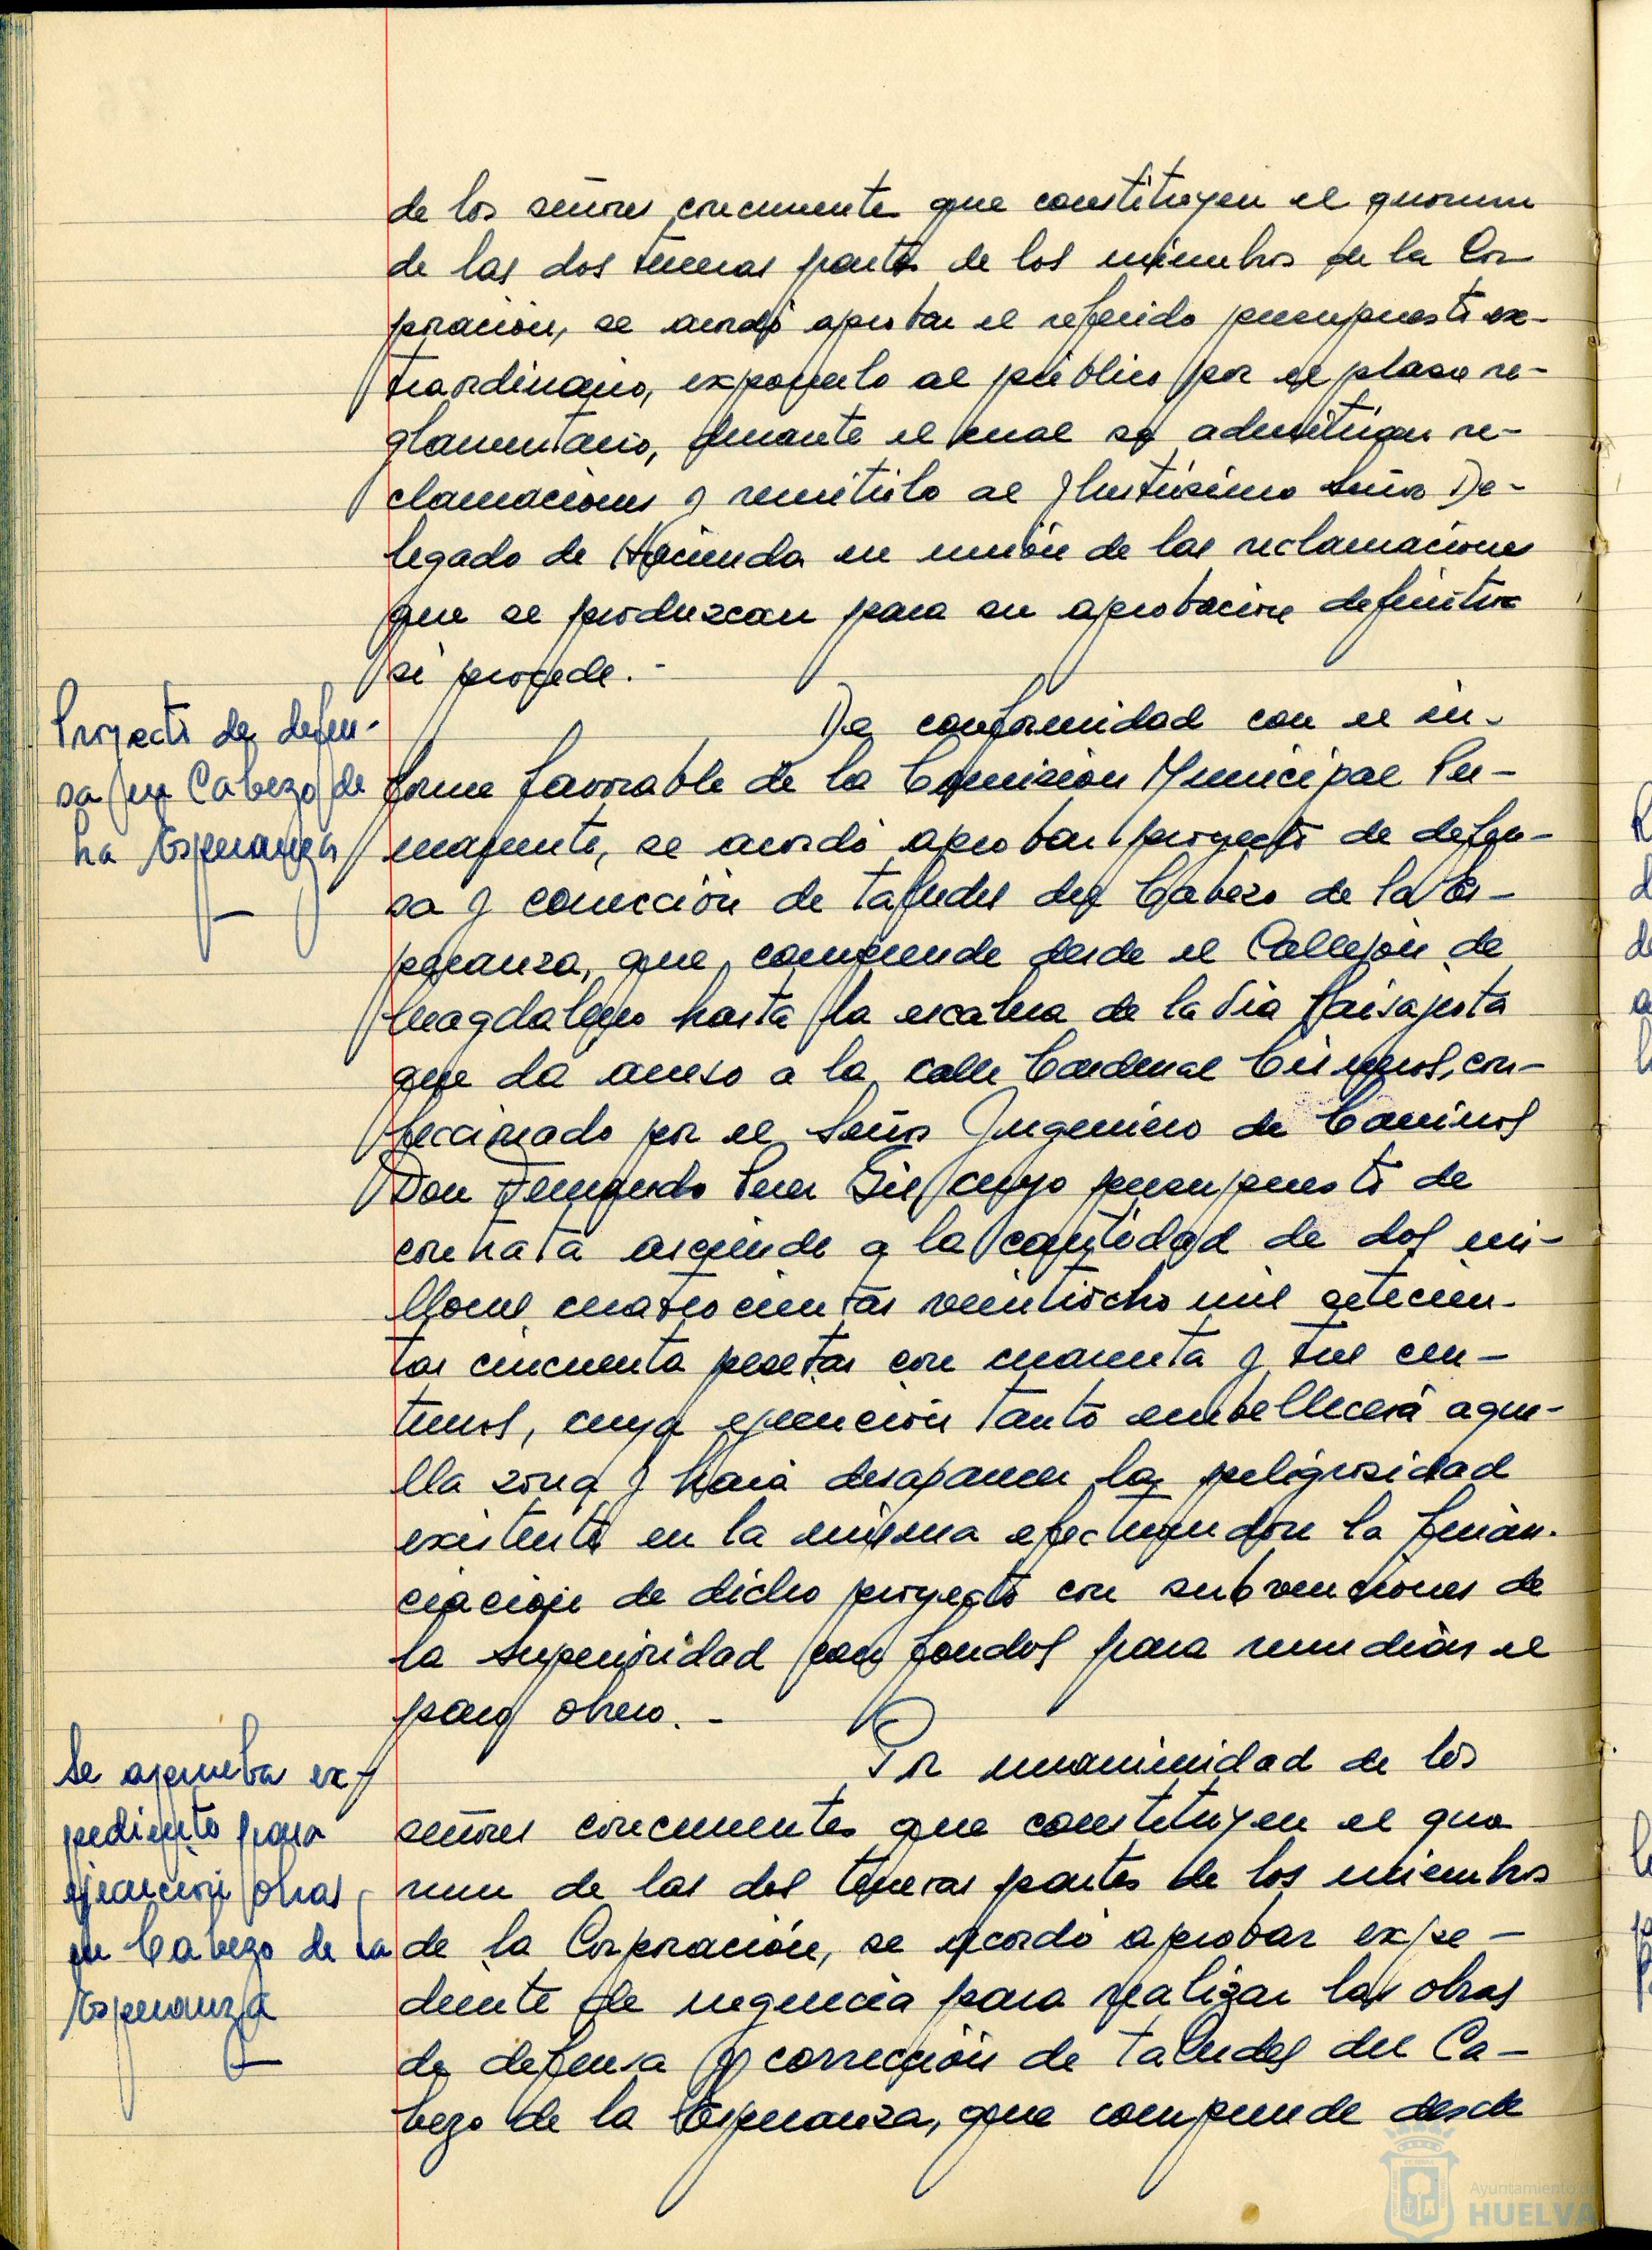 de los señores concurrentes que constituyen el quorum
de las dos terceras partes de los miembros de la Cor
poración, se acordó aprobar el referido presupuesto ex-
traordinario, exponerlo al público por el plazo re-
glamentario, durante el cual se admitirían re-
clamaciones y remitirlo al Ilustrísimo Señor De-
legado de Hacienda en unión de las reclamaciones
que se produzcan para su aprobación definitiva
si procede.-
Proyecto de defen-
sa en Cabezo de
La Esperanza
De conformidad con el in-
forme favorable de la Comisión Municipal Per-
manente, se acordó aprobar proyecto de defen-
sa y corrección de taludes del Cabezo de la Es-
peranza, que comprende desde el Callejón de
Magdaleno hasta la escalera de la Vía Paisajista
que da acceso a la calle Cardenal Cisneros, con-
feccionado por el Señor Ingeniero de Caminos
Don Fernando Gil cuyo presupuesto de
contrata asciende a la cantidad de dos mi-
llones cuatrocientas veintiocho mil setecien-
tas cincuenta pesetas con cuarenta y tres cén-
timos, cuya ejecución tanto embellecerá aque-
lla zona y hará desaparecer la peligrosidad
existente en la misma efectuándose la finan-
ciación de dicho proyecto con subvenciones de
la Superioridad con fondos para remediar el
paro obrero.-
Se aprueba ex-
pediente para
ejecución obras
en Cabezo de La
Esperanza
Por unanimidad de los
señores concurrentes que constituyen el quo
rum de las dos terceras partes de los miembros
de la Corporación, se acordó aprobar expe-
diente de urgencia para realizar las obras
de defensa y corrección de taludes del Ca-
bezo de la Esperanza, que comprende desde
Ayuntamiento de
HUELVA